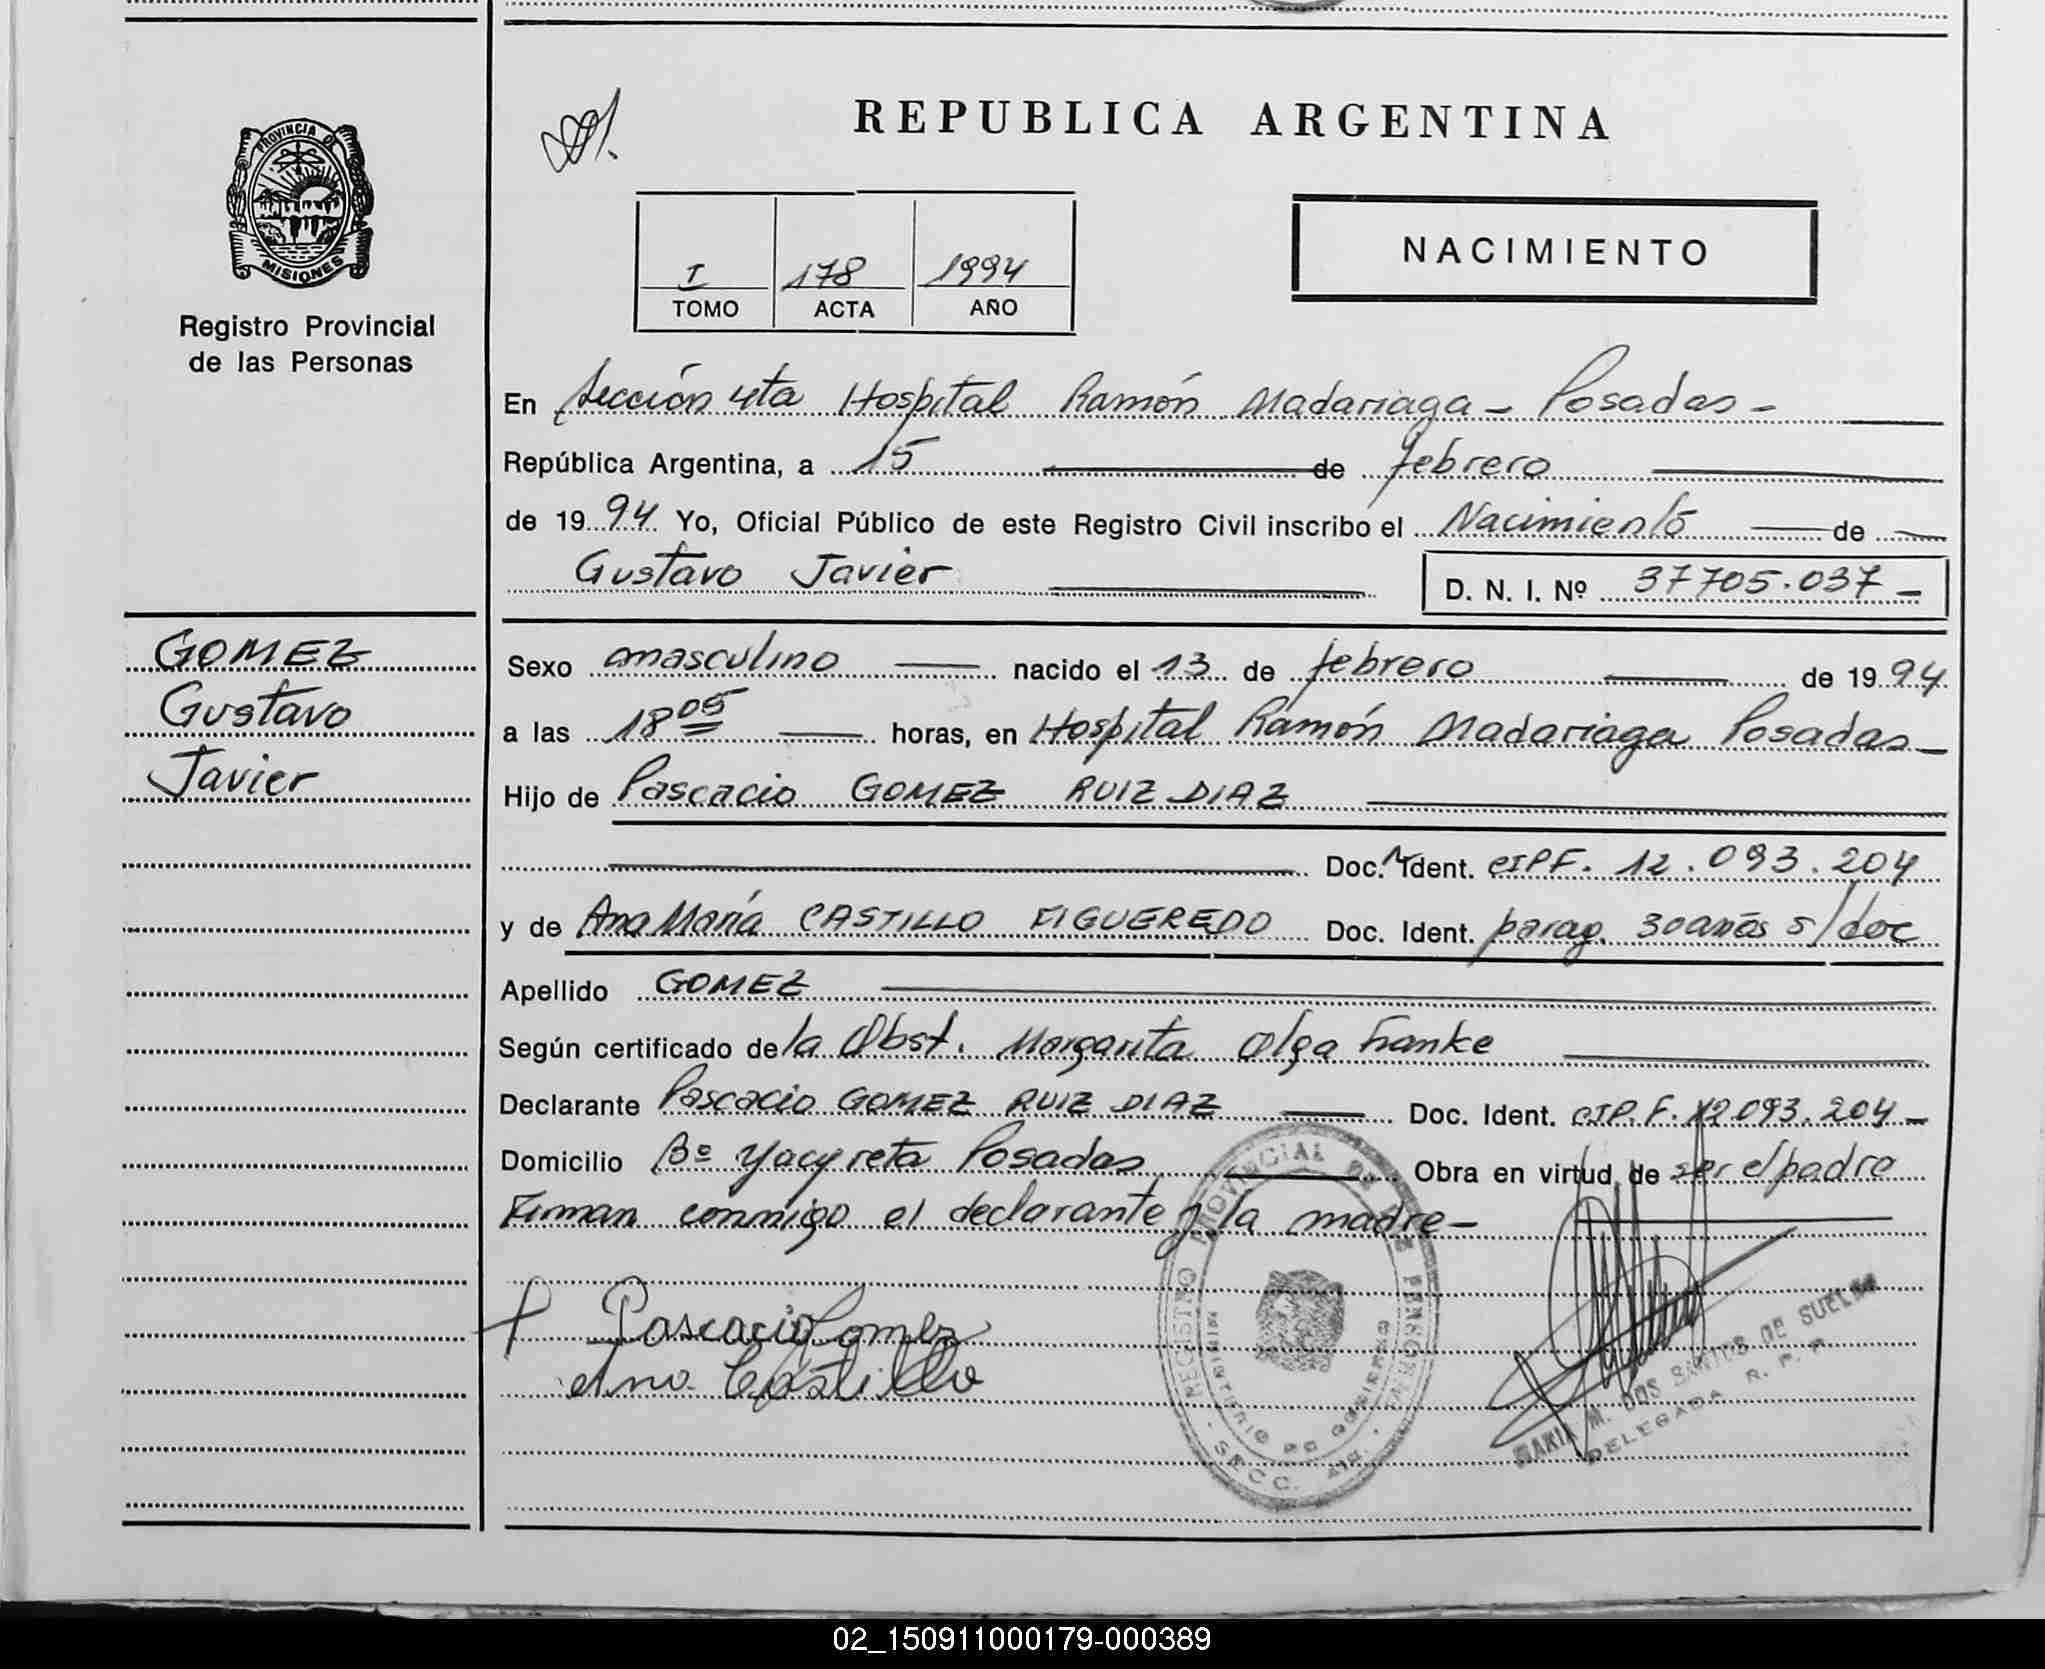 REPUBLICA ARGENTINA
PROVINCIA DE
MISIONES
Registro Provincial
de las Personas
I 178 1994
TOMO ACTA AÑO
NACIMIENTO
En Sección 4ta Hospital Ramón Madariaga - Posadas -
República Argentina, a 15 de febrero
de 1994 Yo, Oficial Público de este Registro Civil inscribo el Nacimiento de
Gustavo Javier D. N. I. Nº 37705.037 -
GOMEZ
Gustavo
Javier
Sexo masculino nacido el 13 de febrero de 1994
a las 18 05 horas, en Hospital Ramón Madariaga Posadas -
Hijo de Pascacio GOMEZ RUIZ DIAZ
Doc. Ident. CIPF. 12.093.204
y de Ana María CASTILLO FIGUEREDO Doc. Ident. parag. 30 años s/doc
Apellido GOMEZ
Según certificado de la Obst. Margarita Olga Franke
Declarante Pascacio GOMEZ RUIZ DIAZ Doc. Ident. CIP.F. 12.093.204 -
Domicilio Bº Yacyreta Posadas Obra en virtud de ser el padre
Firman conmigo el declarante y la madre -
Pascacio Gomez
Ana Castillo
REGISTRO PROVINCIAL DE LAS PERSONAS
MINISTERIO DE GOBIERNO
SECC. 4ta.
MARIA M. DOS SANTOS DE SUELDO
DELEGADA R. P. P.
02_150911000179-000389